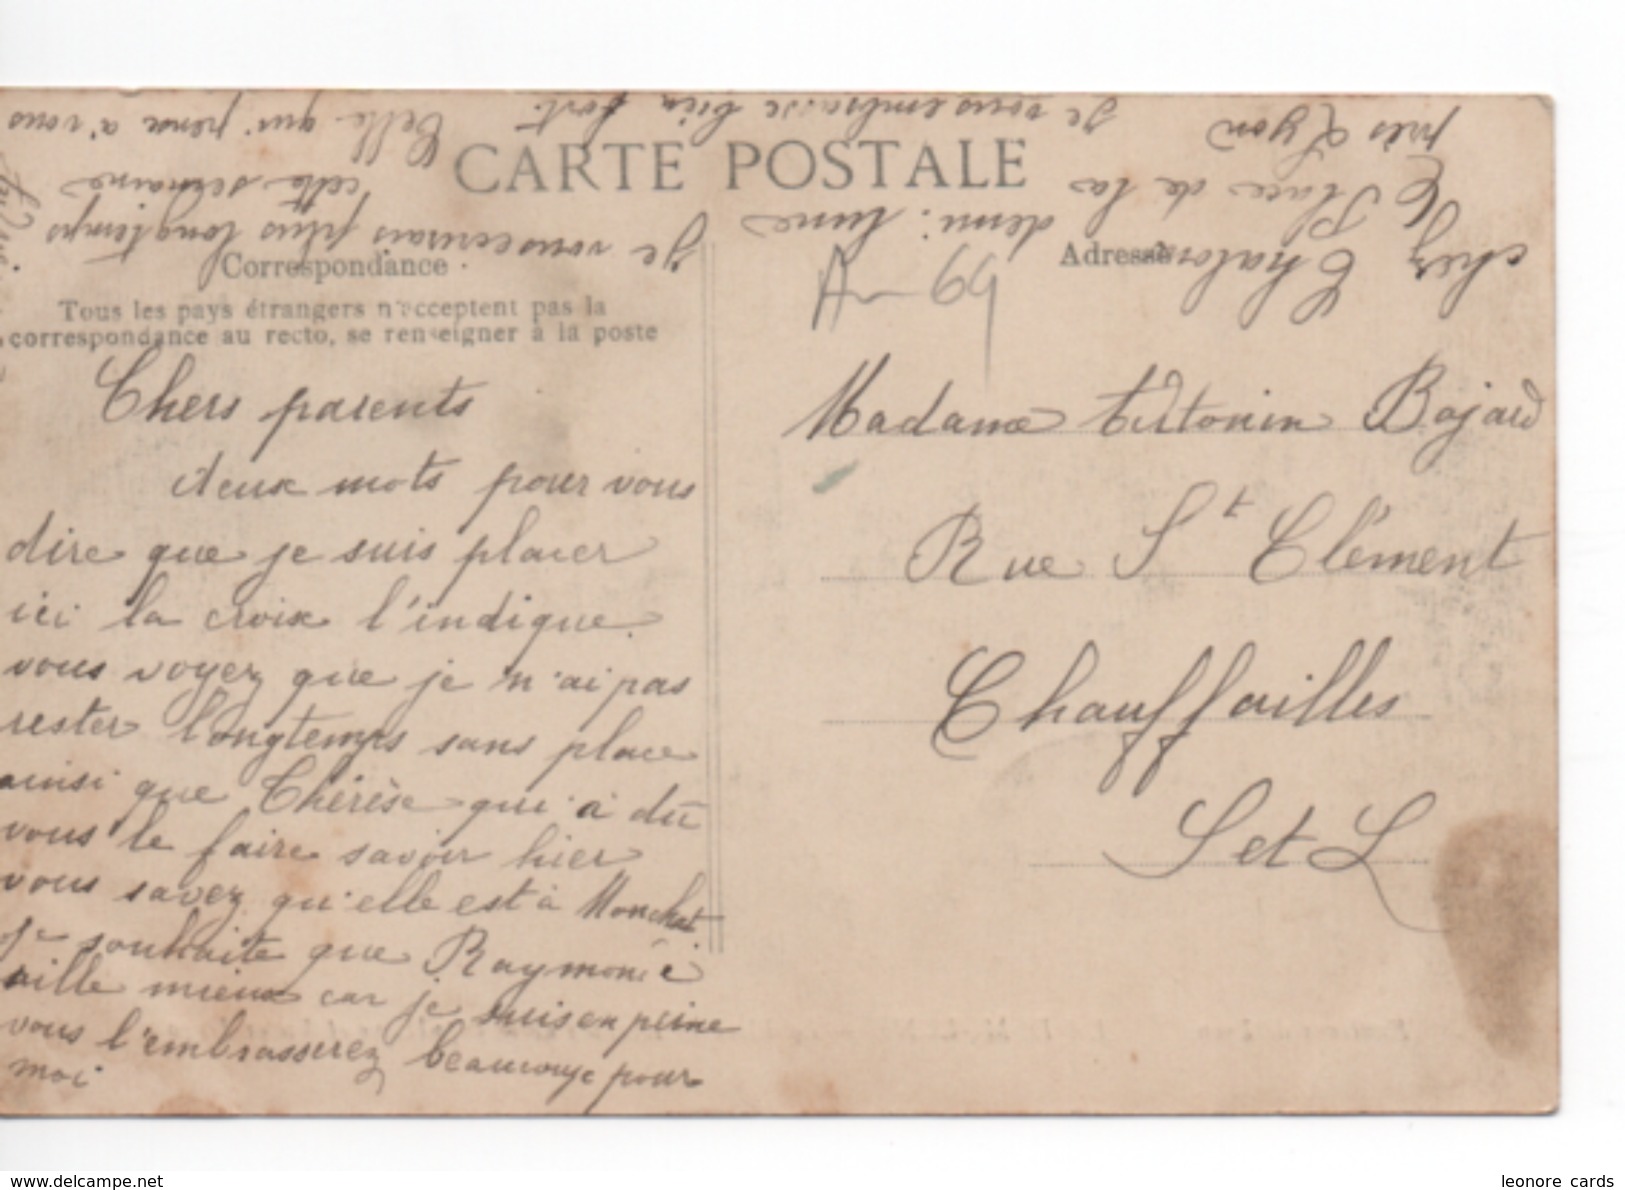 CARTE POSTALE
Correspondance
Tous les pays étrangers n'acceptent pas la
correspondance au recto, se renseigner à la poste
Adresse
Chers parents
deux mots pour vous
dire que je suis placer
ici la croix l'indique.
vous voyez que je n'ai pas
rester longtemps sans place
ainsi que Thérèse qui a dû
vous le faire savoir hier
vous savez qu'elle est à Monchat
je souhaite que Raymond
aille mieux car je suis en peine
vous l'embrasserez beaucoup pour
moi
je vous ecrirais plus longtemps
cette semaine
Celle qui pense a vous
je vous embrasse bien fort
chez
Place de la
demi-lune
près Lyon
A-69
Madame Antonin Bajard
Rue St Clément
Chauffailles
S et L
www.delcampe.net
leonore cards